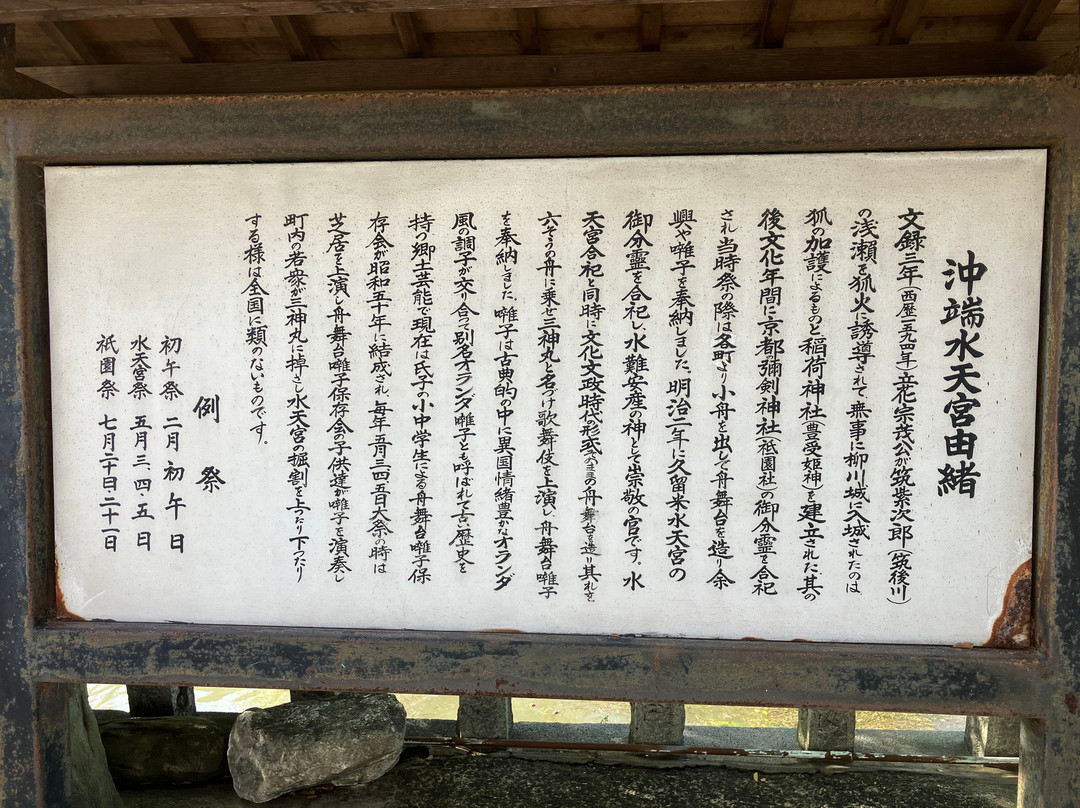 沖端水天宮由緒
文録三年(西歴一五九四年)立花宗茂公が筑紫次郎(筑後川)
の浅瀬を狐火に誘導されて無事に柳川城に入城されたのは
狐の加護によるものと稲荷神社(豊受姫神)を建立された、其の
後文化年間に京都彌剣神社(祗園社)の御分霊を合祀
され当時祭の際は各町より小舟を出して舟舞台を造り余
興や囃子を奉納しました、明治二年に久留米水天宮の
御分霊を合祀し、水難安産の神として崇敬の宮です。水
天宮合祀と同時に文化文政時代の形式そのままの舟舞台を造り其れを、
六そうの舟に乗せ三神丸と名づけ歌舞伎を上演し舟舞台囃子
を奉納しました、囃子は古典的の中に異国情緒豊かなオランダ
風の調子が交り合って別名オランダ囃子とも呼ばれて古い歴史を
持つ郷土芸能で現在は氏子の小中学生による舟舞台囃子保
存会が昭和五十年に結成され、毎年五月三四五日大祭の時は
芝居を上演し舟舞台囃子保存会の子供達が囃子を演奏し
町内の若衆が三神丸に掉さし水天宮の掘割を上ったり下ったり
する様は全国に類のないものです。
例祭
初午祭 二月初午日
水天宮祭 五月三、四・五日
祗園祭 七月二十日二十一日